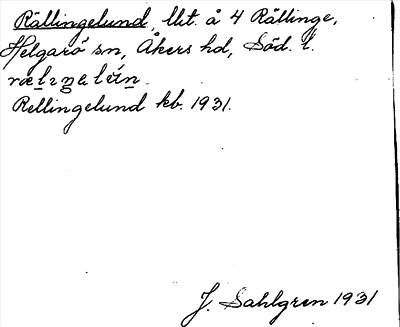 Rällingelund, llt. å 4 Rällinge,
Helgarö sn, Åkers hd, Söd. l.
Rellingelund kb. 1931.
J. Sahlgren 1931